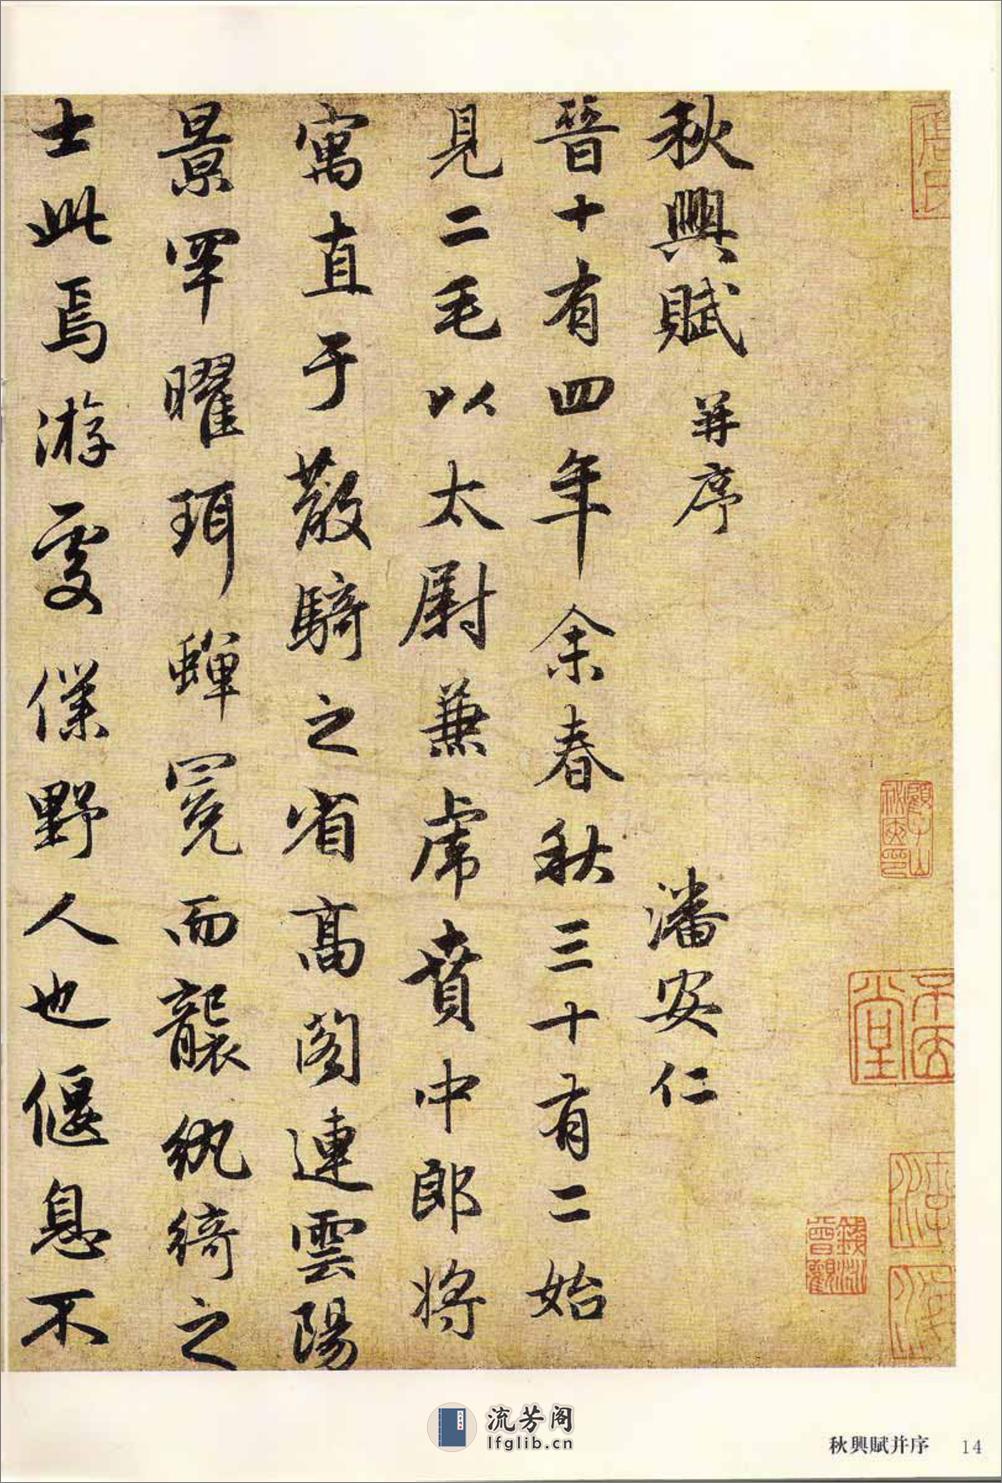 秋興賦 并序 潘安仁
晉十有四年余春秋三十有二始
見二毛以太尉兼虎賁中郎將
寓直于散騎之省高閣連雲陽
景罕曜珥蟬冕而襲紈綺之
士此焉游處僕野人也偃息不
流芳阁
lfglib.cn
秋興賦并序 14